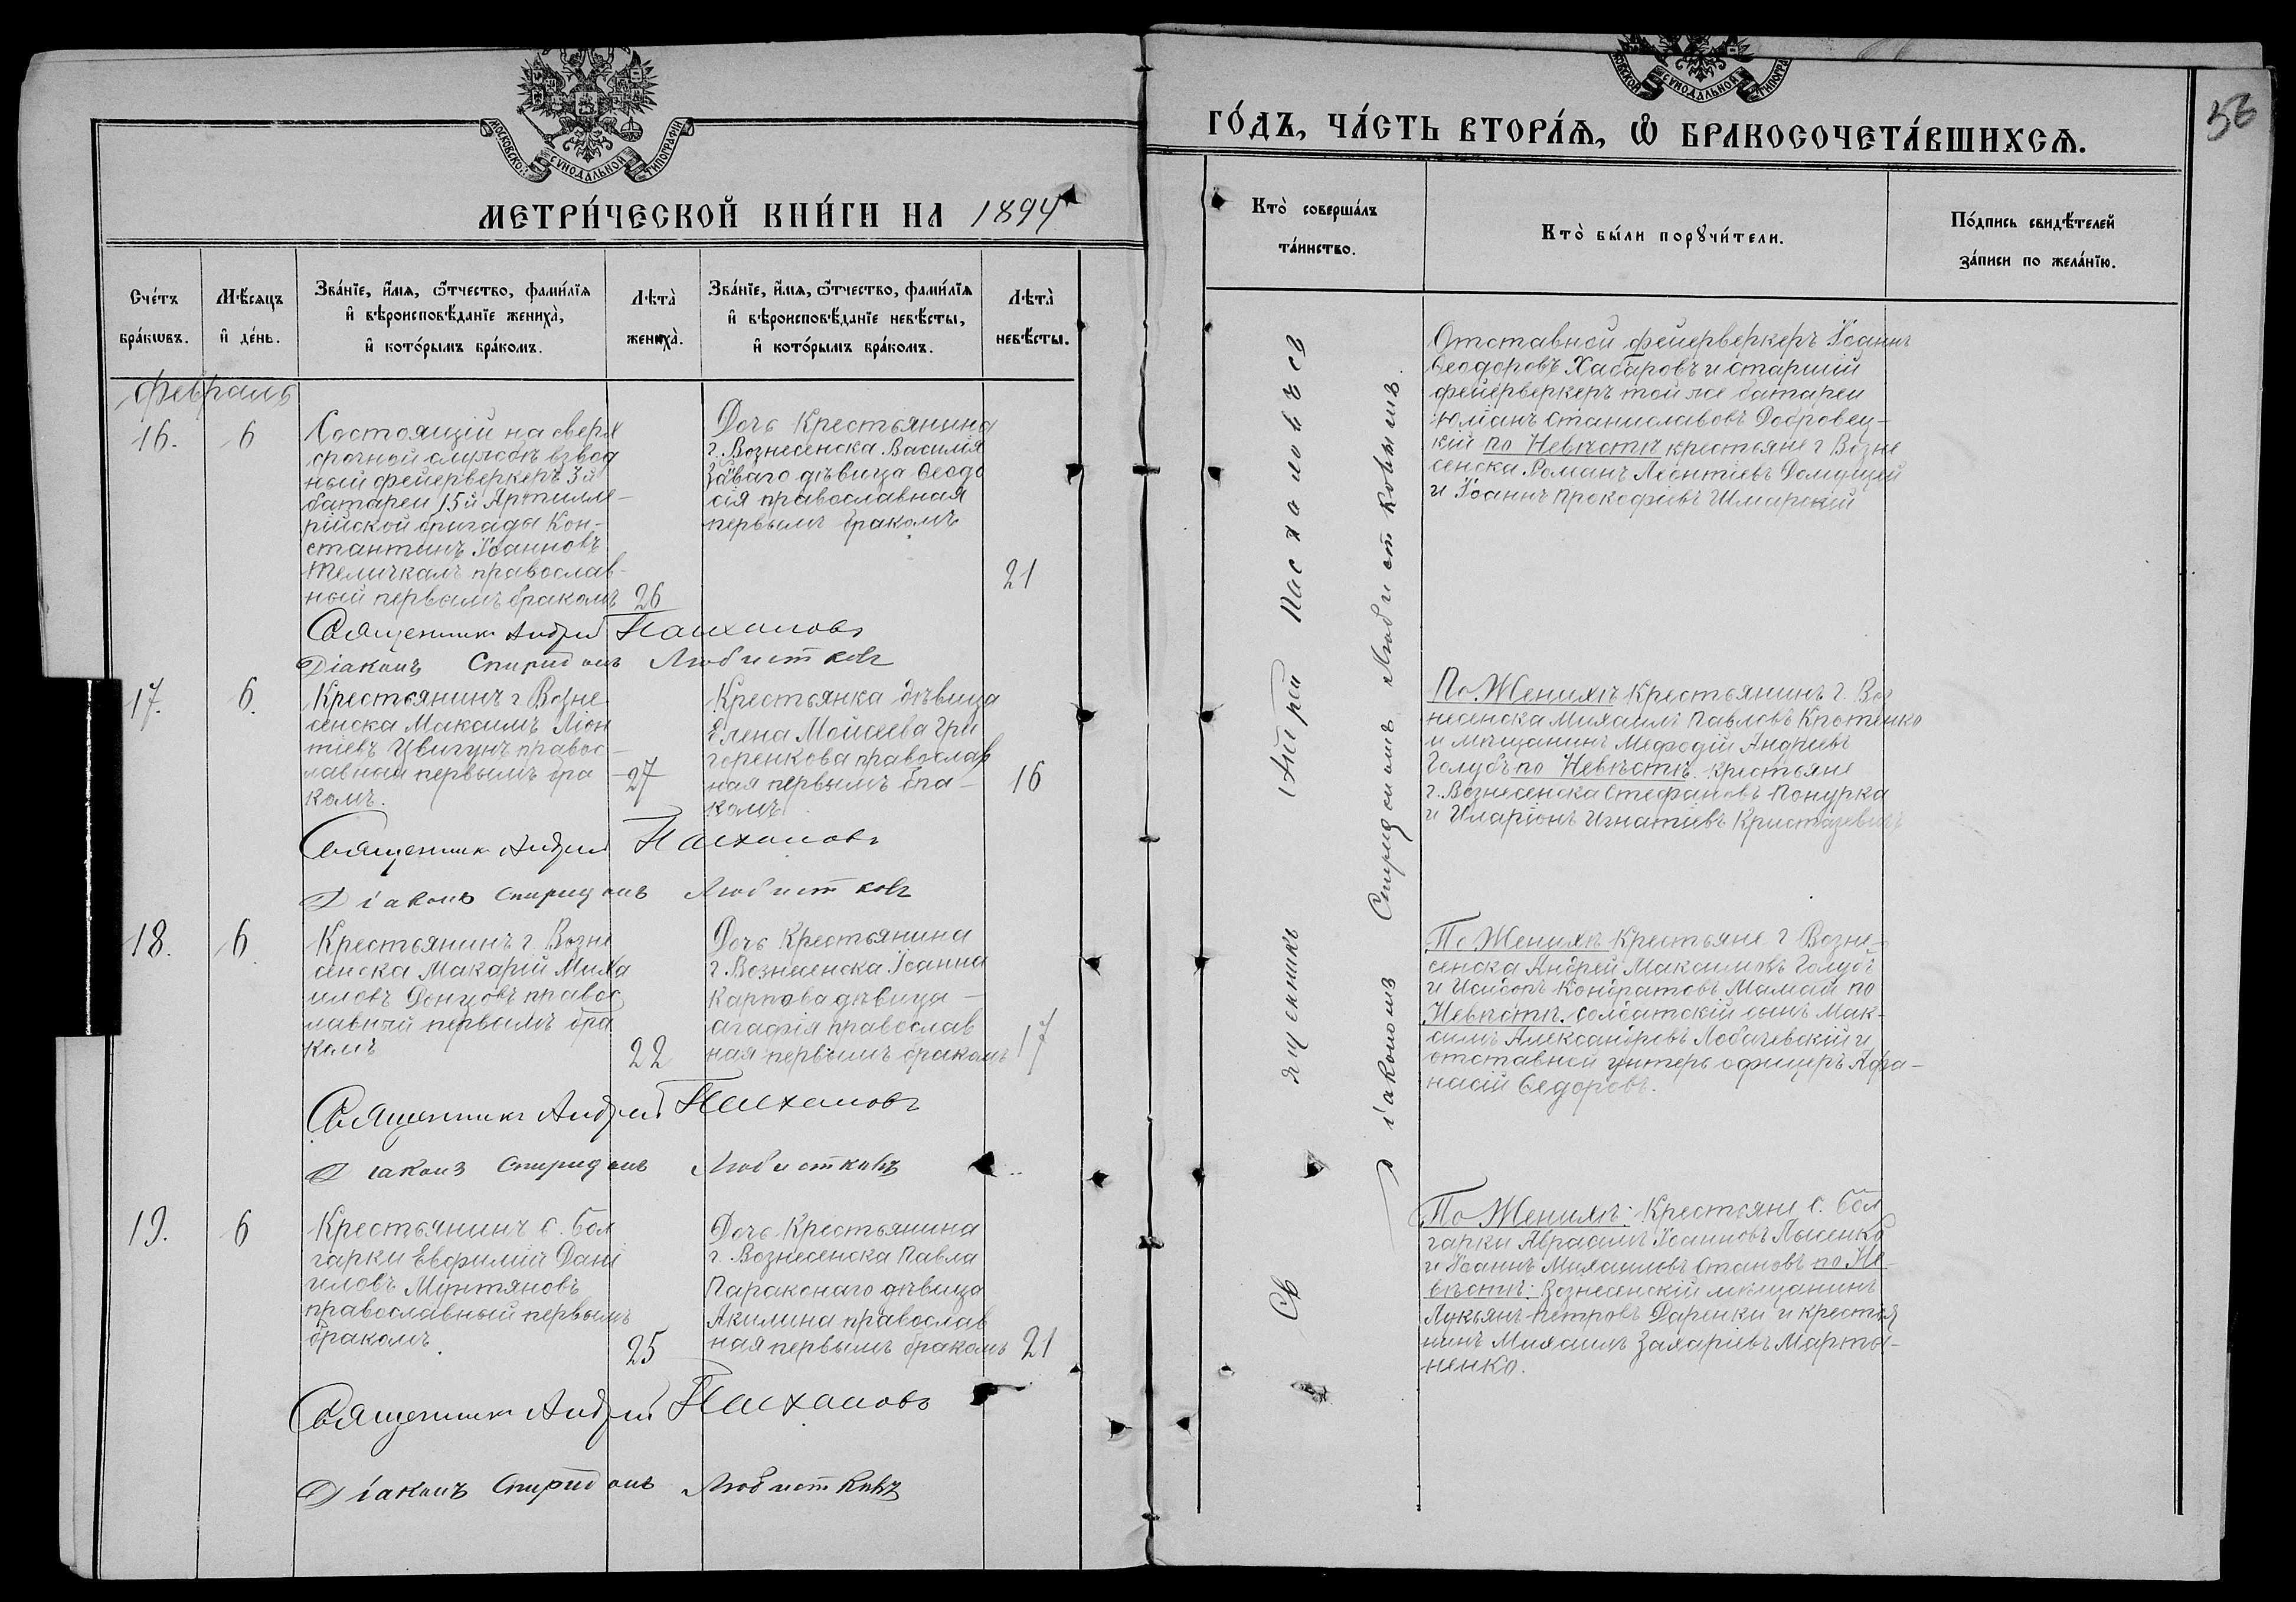 МОСКОВСКОЙ СУНОДАЛЬНОЙ ТИПОГРАФІИ
МЕТРИ́ЧЕСКОЙ КНИ́ГИ НА 1894
Сче́тъ бра́кѡвъ.
Мѣ́сяцъ и҆ де́нь.
Зва́нїе, и҆́мя, ѻ҆́тчество, фами́лїя
и҆ вѣроисповѣ́данїе жениха̀,
и҆ кото́рымъ бра́комъ.
Лѣта̀ жениха̀.
Зва́нїе, и҆́мя, ѻ҆́тчество, фами́лїя
и҆ вѣроисповѣ́данїе невѣ́сты,
и҆ кото́рымъ бра́комъ.
Лѣта̀ невѣ́сты.
Февраль
16.
6
Состоящій на сверх
срочной службѣ взвод
ный фейерверкеръ 3й
батареи 15й Артилле-
рійской бригады Кон-
стантинъ Іоанновъ
Теличкалъ православ-
ный первымъ бракомъ
26
Дочь Крестьянина
г. Вознесенска Василія
дѣвица Ѳеодо
сія православная
первымъ бракомъ
21
Священникъ Андрей Пасхаловъ
Діаконъ Спиридонъ Любистковъ
17.
6.
Крестьянинъ г. Возне
сенска Максимъ Ліон
тіевъ Цвигунъ правос-
лавный первымъ бра
комъ.
27
Крестьянка дѣвица
Елена Моисеева Гри
горенкова православ
ная первымъ бра-
комъ
16
Священникъ Андрей Пасхаловъ
Діаконъ Спиридонъ Любистковъ
18.
6
Крестьянинъ г. Возне
сенска Макарій Миха
иловъ Донцовъ правос
лавный первымъ бра
комъ
22
Дочь Крестьянина
г. Вознесенска Іоанна
Карпова дѣвица-
Агафія православ
ная первымъ бракомъ
17
Священникъ Андрей Пасхаловъ
Діаконъ Спиридонъ Любистковъ
19.
6
Крестьянинъ с. Бол
гарки Евфимій Дані
иловъ Мунтяновъ
православный первымъ
бракомъ.
25
Дочь Крестьянина
г. Вознесенска Павла
Параконаго дѣвица
Акилина православ
ная первымъ бракомъ
21
Священникъ Андрей Пасхаловъ
Діаконъ Спиридонъ Любистковъ
МОСКОВСКОЙ СУНОДАЛЬНОЙ ТИПОГРА
56
ГО́ДЪ, ЧА́СТЬ ВТОРА́Я, Ѡ҆ БРАКОСОЧЕТА́ВШИХСЯ.
Кто̀ соверша́лъ
та́инство.
Кто̀ бы́ли порꙋчи́тели.
По́дпись свидѣ́телей
за́писи по жела́нїю.
Священникъ Андрей Пасхаловъ съ
Діакономъ Спиридономъ Любистковымъ
Отставной фейерверкеръ Іоаннъ
Ѳеодоровъ Хабаровъ и старшій
фейерверкеръ той же батареи
Юліанъ Станиславовъ Добровец-
кій по Невѣстѣ крестьяне г Возне
сенска Романъ Леонтіевъ
и Іоаннъ Прокофіевъ Шмирскій
По Женихѣ Крестьянинъ г. Воз
несенска Михаилъ Павловъ Кротенко
и мѣщанинъ Мефодій Андреевъ
Голубъ по Невѣстѣ. крестьяне
г. Вознесенска Стефановъ Понурка
и Иларіонъ Игнатіевъ
По Женихѣ Крестьяне г Возне-
сенска Андрей Максимовъ Голубъ
и Кондратовъ Мамай по
Невѣстѣ. солдатскій сынъ Мак-
симъ Александровъ Лобачевскій и
отставной унтеръ офицеръ Афа-
насій Ѳедоровъ.
По Женихѣ: Крестьяне с. Бол
гарки Авраамъ Іоанновъ Лысенко
и Іоаннъ Михаиловъ Становъ по Не-
вѣстѣ: Вознесенскій мѣщанинъ
Лукьянъ Петровъ Даренки и крестья
нинъ Михаилъ Захаріевъ Марты-
ненко.